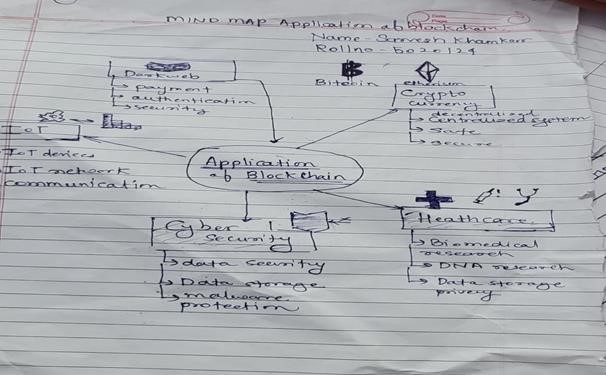 MIND MAP Application of Blockchain.
Name - Sarvesh Khamkar
Rollno - 5020124
Darkweb
payment
authentication
security
Bitcoin
etherium
Crypto
currency
decentralized
Centralized system
Safe
secure
IoT
IoT devices
IoT network
communication
Application
of Blockchain
Cyber
Security
data security
Data storage
malware
protection
Heathcare.
Biomedical
research
DNA research
Data storage
privacy